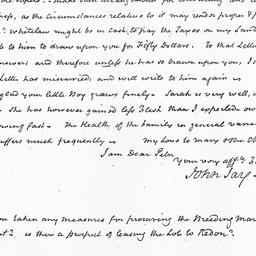 make such arrangements for
sefs, as the Circumstances relative to it may render proper &
Whitelaw might be in Cash to pay the Taxes on my Land
to him to draw upon you for Fifty Dollars. To that Letter
answer and therefore unless he has so drawn upon you, I
Letter has miscarried, and will write to him again
glad your little Boy grows finely. Sarah is very well, a
. She has however gained less Flesh than I expected
owing fast. The Health of the Family in general
uffers much frequently is My Love to Mary &
I am Dear Peter
your very affte
John Jay
ou taken any measures for procuring the Breeding Mar
is there a prospect of leasing the Lots to Redon?